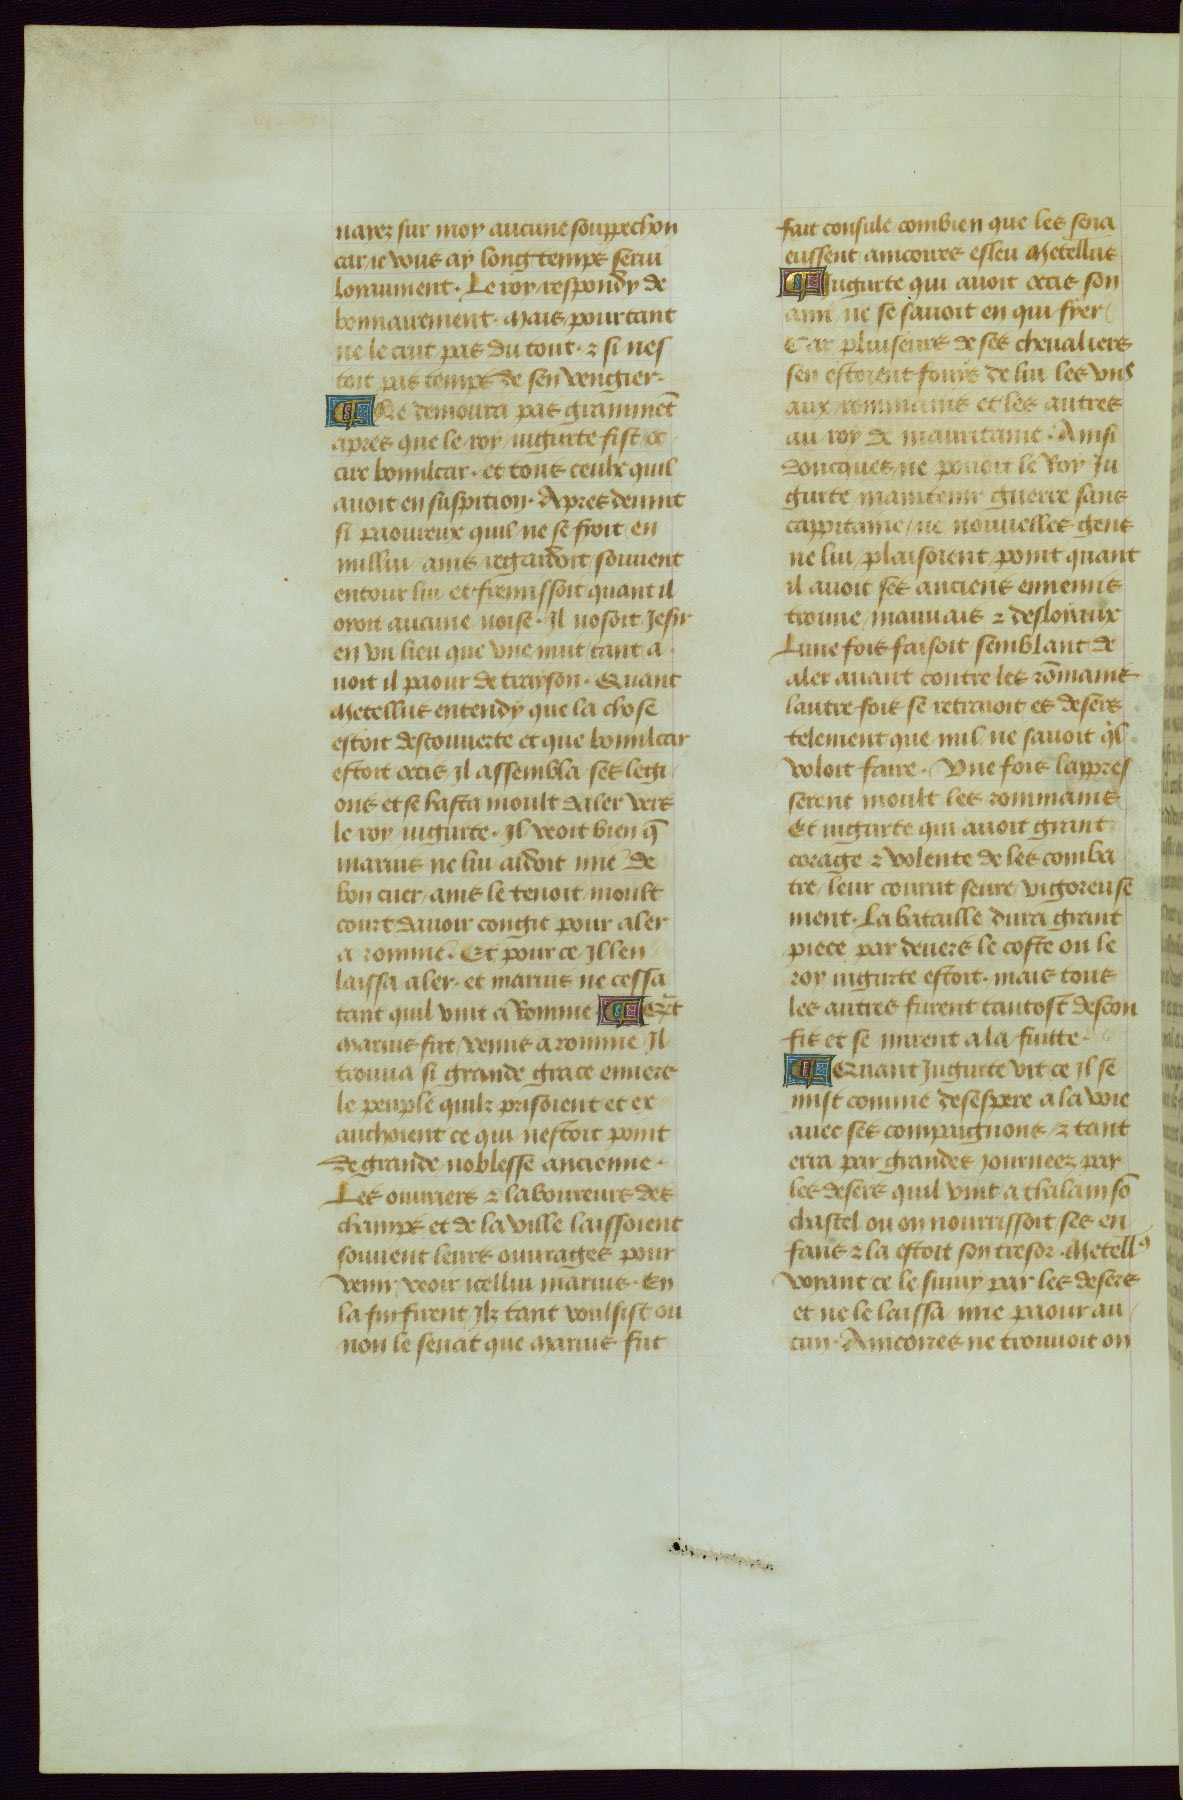 nayez sur moy aucune souppechon
car ie vous ay long temps serui
loiaument. Le roy respondy de
bonnairement. Mais pourtant
ne le crut pas du tout. ⁊ si nes
toit pas temps de sen vengier.
¶ Ne demoura pas grammēt
apres que le roy iugurte fist oc
cire bomilcar. et tous ceulx quil
auoit en suspition. Apres deuint
si paoureux quil ne se fioit en
nullui ains regardoit souuent
entour lui et fremissoit quant il
ooit aucune noise. Il nosoit Jesir
en vn lieu que vne nuit tant a
uoit il paour de trayson. Quant
Metellus entendy que la chose
estoit descouuerte et que bomilcar
estoit occis Il assembla ses legi
ons et se hasta moult daler vers
le roy iugurte. Il veoit bien q̄
marius ne lui aidoit mie de
bon cuer / ains le tenoit moult
court dauoir congie pour aler
a romme. Et pour ce Il len
laissa aler. et marius ne cessa
tant quil vint a Romme ¶ Qn̄t
Marius fut venus a romme Il
trouua si grande grace enuers
le peuple quilz prisoient et ex
auchoient ce qui nestoit point
de grande noblesse ancienne.
Les ouuriers ⁊ laboureurs des
champs et de la ville laissoient
souuent leurs ouurages pour
venir veoir icellui marius. En
la fin firent Ilz tant voulsist ou
non le senat que Marius fut
fait consule combien que les sena
eussent ancoires esleu Metellus
¶ Iugurte qui auoit occis son
ami ne se sauoit en qui fyer
Car pluiseurs de ses chevaliers
sen estoient fouis de lui les vns
aux rommains et les autres
au roy de mauritaine. Ainsi
doncques ne pouoit le Roy Ju
gurte maintenir guerre sans
cappitaine / ne nouuelles gens
ne lui plaisoient point quant
il auoit ses anciens ennemis
trouue mauuais ⁊ desloiaux
Lune fois faisoit semblant de
aler auant contre les rōmains
lautre fois se retraioit es desers
telement que nul ne sauoit q̄l
voloit faire. Vne fois lappres
serent moult les rommains
Et iugurte qui auoit grant
corage ⁊ volente de les comba
tre / leur courut seure vigoreuse
ment. La bataille dura grant
piece par deuers le coste ou le
roy iugurte estoit. mais tous
les autres furent tantost descon
fis et se mirent a la fuitte.
¶ Quant Jugurte vit ce Il se
mist comme desespere a la voie
auec ses compaignons / ⁊ tant
erra par grandes journeez par
les desers quil vint a thalam sō
chastel ou on nourrissoit ses en
fans ⁊ la estoit son tresor. Metellꝯ
voiant ce le suiuy par les desers
et ne le laissa mie paour au
cun. Ancoires ne trouuoit on